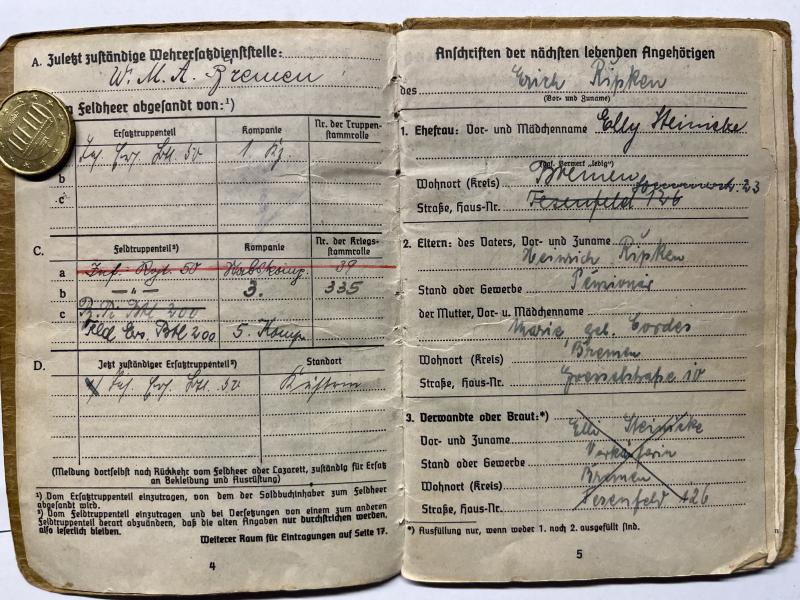 A. Zuletzt zuständige Wehrersatzdienststelle:
W. M. A. Bremen
Feldheer abgesandt von:¹)
Ersatztruppenteil Kompanie Nr. der Truppenstammrolle
Inf. Ers. Btl. 50 1. Kp.
b
c
C. Feldtruppenteil²) Kompanie Nr. der Kriegsstammrolle
a Inf. Regt. 50 Stabskomp. 39
b — " — 3. 335
c Btl 200
Feld Ers. Btl 200 5. Komp.
D. Jetzt zuständiger Ersatztruppenteil²) Standort
Inf. Ers. Btl. 50 Küstrin
(Meldung dortselbst nach Rückkehr vom Feldheer oder Lazarett, zuständig für Ersatz
an Bekleidung und Ausrüstung)
¹) Vom Ersatztruppenteil einzutragen, von dem der Soldbuchinhaber zum Feldheer
abgesandt wird.
²) Vom Feldtruppenteil einzutragen und bei Versetzungen von einem zum anderen
Feldtruppenteil derart abzuändern, daß die alten Angaben nur durchstrichen werden,
also leserlich bleiben.
Weiterer Raum für Eintragungen auf Seite 17.
4
Anschriften der nächsten lebenden Angehörigen
des Erich Ripken
(Vor- und Zuname)
1. Ehefrau: Vor- und Mädchenname Elly Steinicke
(ggf. Vermerk „ledig")
Wohnort (Kreis) Bremen
Straße, Haus-Nr. Fesenfeld 126 23
2. Eltern: des Vaters, Vor- und Zuname
Heinrich Ripken
Stand oder Gewerbe Pensionär
der Mutter, Vor- u. Mädchenname
Marie, geb. Cordes
Wohnort (Kreis) Bremen
Straße, Haus-Nr. Groesselstraße 10
3. Verwandte oder Braut:*)
Vor- und Zuname Elly Steinicke
Stand oder Gewerbe Verkäuferin
Wohnort (Kreis) Bremen
Straße, Haus-Nr. Fesenfeld 126
*) Ausfüllung nur, wenn weder 1. noch 2. ausgefüllt sind.
5